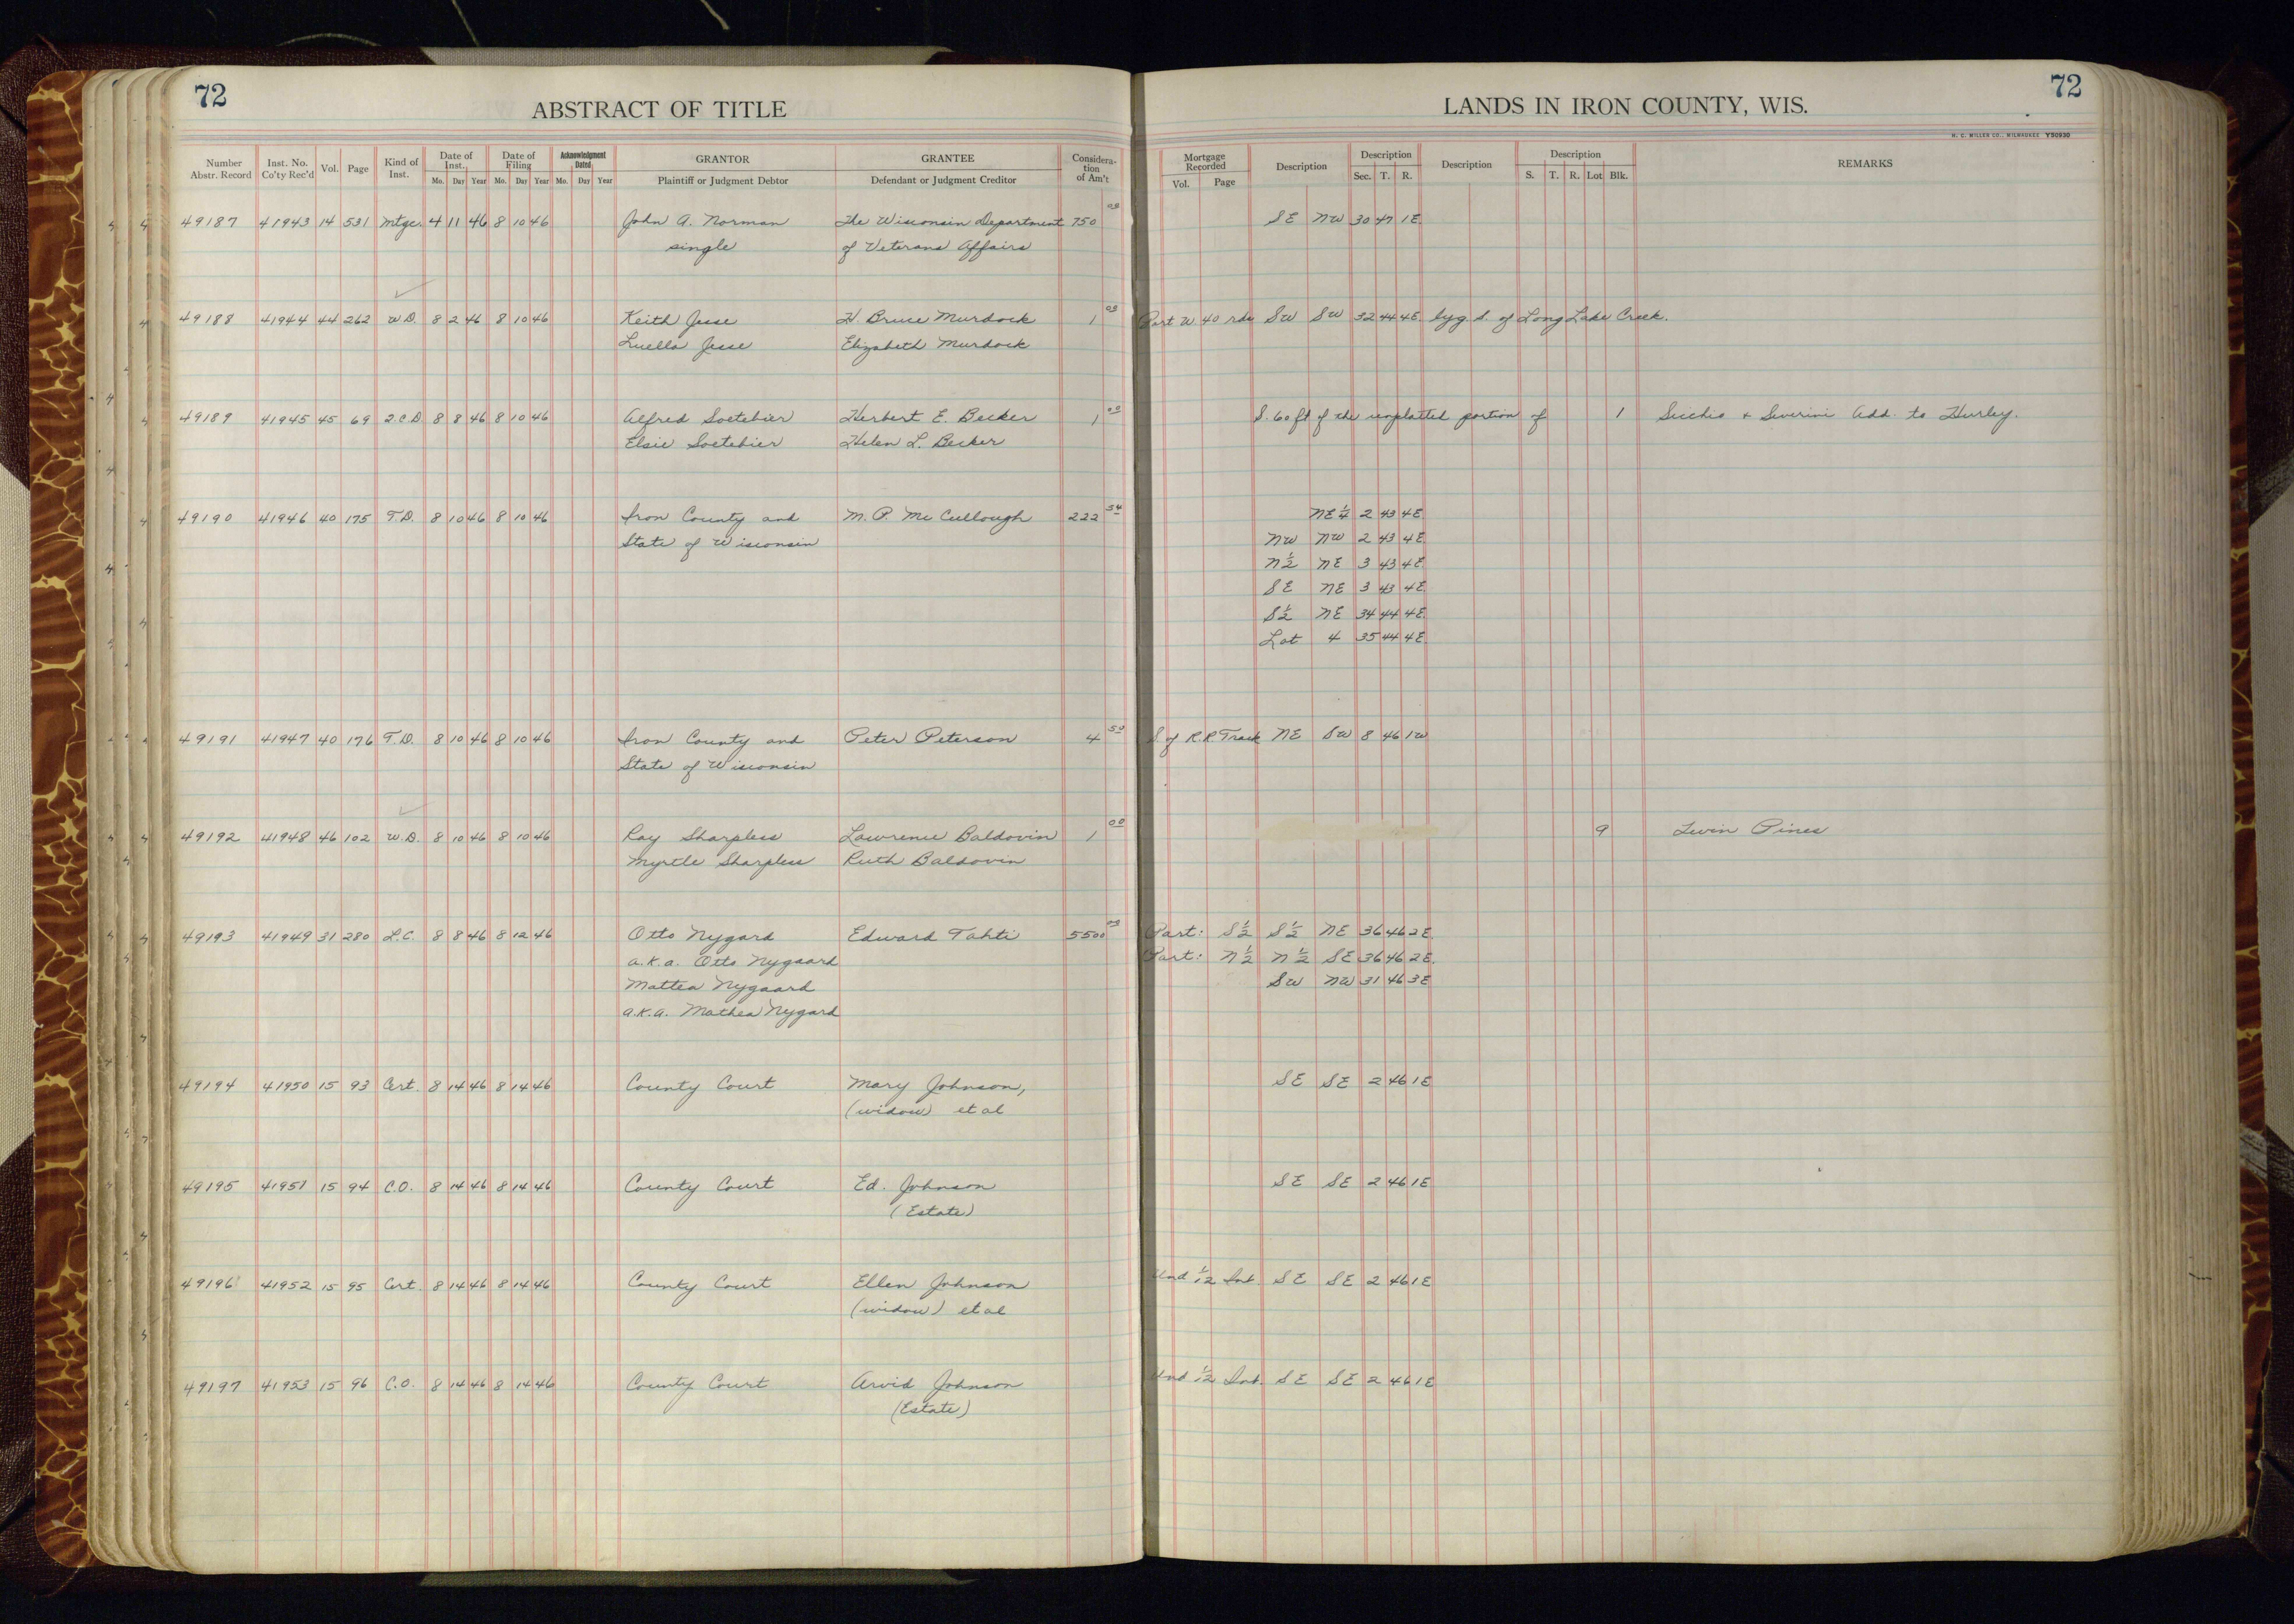 72
ABSTRACT OF TITLE
Number Abstr. Record Inst. No. Co'ty Rec'd Vol. Page Kind of Inst. Date of Inst. Mo. Day Year Date of Filing Mo. Day Year Acknowledgment Dated Mo. Day Year GRANTOR Plaintiff or Judgment Debtor GRANTEE Defendant or Judgment Creditor Consideration of Am't
49187 41943 14 531 Mtge. 4 11 46 8 10 46 John A. Norman The Wisconsin Department 750 00
single of Veterans Affairs
49188 41944 44 262 W.D. 8 2 46 8 10 46 Keith Jesse H. Bruce Murdock 1 00
Luella Jesse Elizabeth Murdock
49189 41945 45 69 2.C.D. 8 8 46 8 10 46 Alfred Soetebier Herbert E. Becker 1 00
Elsie Soetebier Helen L. Becker
49190 41946 40 175 T.D. 8 10 46 8 10 46 Iron County and M. P. McCullough 222 54
State of Wisconsin
49191 41947 40 176 T.D. 8 10 46 8 10 46 Iron County and Peter Peterson 4 50
State of Wisconsin
49192 41948 46 102 W.D. 8 10 46 8 10 46 Ray Sharpless Lawrence Baldovin 1 00
Myrtle Sharpless Ruth Baldovin
49193 41949 31 280 L.C. 8 8 46 8 12 46 Otto Nygard Edward Tahti 5500 00
a.k.a. Otto Nygaard
Mattea Nygaard
a.k.a. Mathea Nygard
49194 41950 15 93 Cert. 8 14 46 8 14 46 County Court Mary Johnson,
(widow) et al
49195 41951 15 94 C.O. 8 14 46 8 14 46 County Court Ed. Johnson
(Estate)
49196 41952 15 95 Cert. 8 14 46 8 14 46 County Court Ellen Johnson
(widow) et al
49197 41953 15 96 C.O. 8 14 46 8 14 46 County Court Arvid Johnson
(Estate)
72
LANDS IN IRON COUNTY, WIS.
H. C. MILLER CO., MILWAUKEE Y50930
Mortgage Recorded Vol. Page Description Description Sec. T. R. Description Description S. T. R. Lot Blk. REMARKS
SE NW 30 47 1E
Part W. 40 rds SW SW 32 44 4E lyg S. of Long Lake Creek.
S. 60 ft of the unplatted portion of 1 Secchio & Severini Add. to Hurley.
NE 1/4 2 43 4E
NW NW 2 43 4E
N 1/2 NE 3 43 4E
SE NE 3 43 4E
S 1/2 NE 34 44 4E
Lot 4 35 44 4E
S. of R.R. Track NE SW 8 46 1W
9 Twin Pines
Part: S 1/2 S 1/2 NE 36 46 2E
Part: N 1/2 N 1/2 SE 36 46 2E.
SW NW 31 46 3E
SE SE 2 46 1E
SE SE 2 46 1E
Und 1/12 Int. SE SE 2 46 1E
Und 1/12 Int. SE SE 2 46 1E